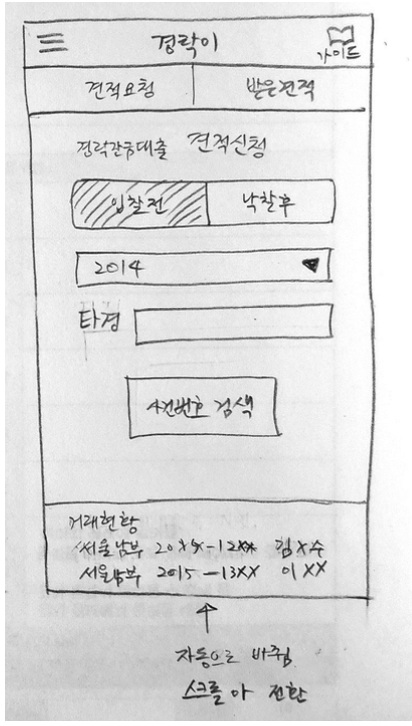 경락이
가이드
견적요청 받은견적
경락잔금대출 견적신청
입찰전 낙찰후
2014
타경
사건번호 검색
거래현황
서울남부 20XX-12XX 김XX
서울남부 2015-13XX 이XX
자동으로 바뀜
스크롤 아 전환